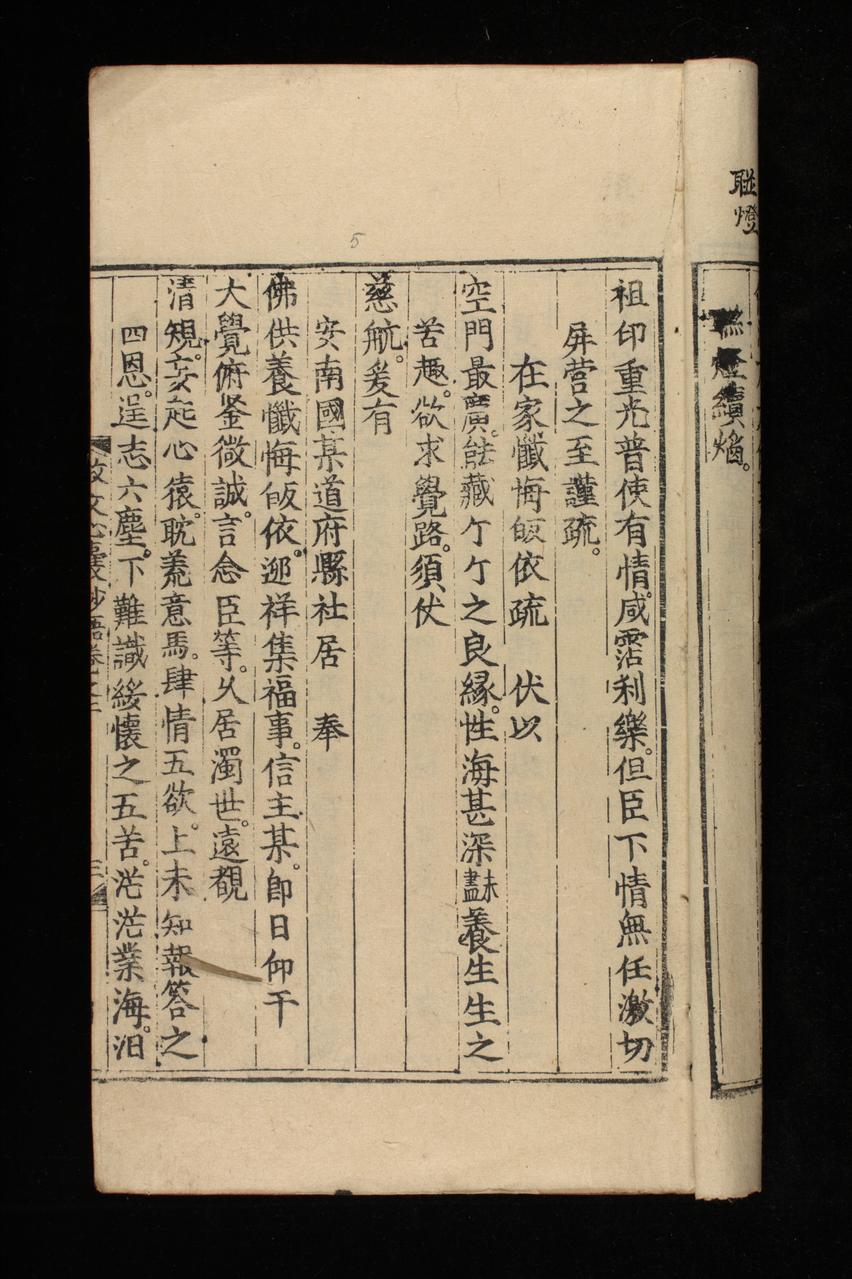 聮燈
聮燈續焰。
祖印重光普使有情。咸霑利樂。但臣下情無任激切
屏營之至謹疏。
在家懺悔皈依疏　伏以
空門最廣。能藏亇亇之良緣。性海甚深𧖻養生生之
苦趣。欲求覺路。須仗
慈航。爰有
安南國某道府縣社居　奉
佛供養懺悔皈依。迎祥集福事。信主某。卽日仰干
大覺俯鉴微誠。言念臣等。久居濁世。遠覩
清規。妄起心猿。耽羨意馬。肆情五欲。上未知報答之
四恩。逞志六塵。下難識綏懷之五苦。茫茫業海。汩
5